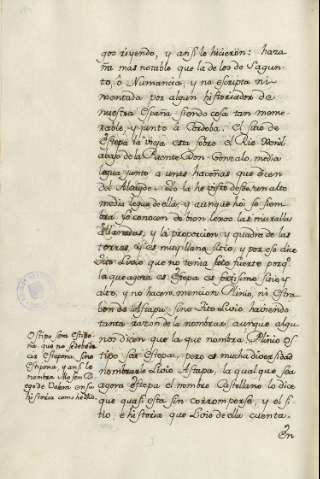 gos riyendo, y ansi lo hicieron: haza
ña mas notable que la de los de Sagun
to, ò Numancia, y no escripta ni
mentada por algun historiador de
nuestra España, siendo cosa tan memo
rable, y junto à Cordoba. El sitio de
Estepa la vieja esta sobre el Rio Xenil
abajo de la Puente Don Gonzalo, media
legua junto à unas haceñas que dicen
del Alcayde. Yo la he visto desde en alto
media legua de ella, y aunque hoi se siem
bra yo conoci de bien lexos las murallas
allanadas, y la proporcion, y quadra de las
torres. Es mui llano sitio, y por eso dice
Tito Livio que no tenia sitio fuerte porque
la que agora es Estepa es fortisimo sitio, y
alto, y no hacen mencion Plinio, ni Estra
bon de Astapa; sino Tito Livio haviendo
tanta razon de la nombrar, aunque algu
nos dicen que la que nombra Plinio os
tipo sea Estepa, pero es mucha diversidad
nombrarle Livio Astapa, la qual que sea
agora Estepa el nombre Castellano lo dice
que quasi esta sin corromperse, y el si
tio, è historia que Livio de ella cuenta.
En
Ostipo sea Estipo
na que no se debe de
cir Estepona sino
Estipona, y ansi lo
nombra Mosen Die
go de Valera en su
historia como he dicho.